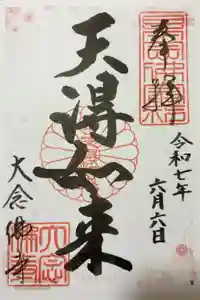 奉拝
令和七年
六月六日
天得如来
大念佛寺